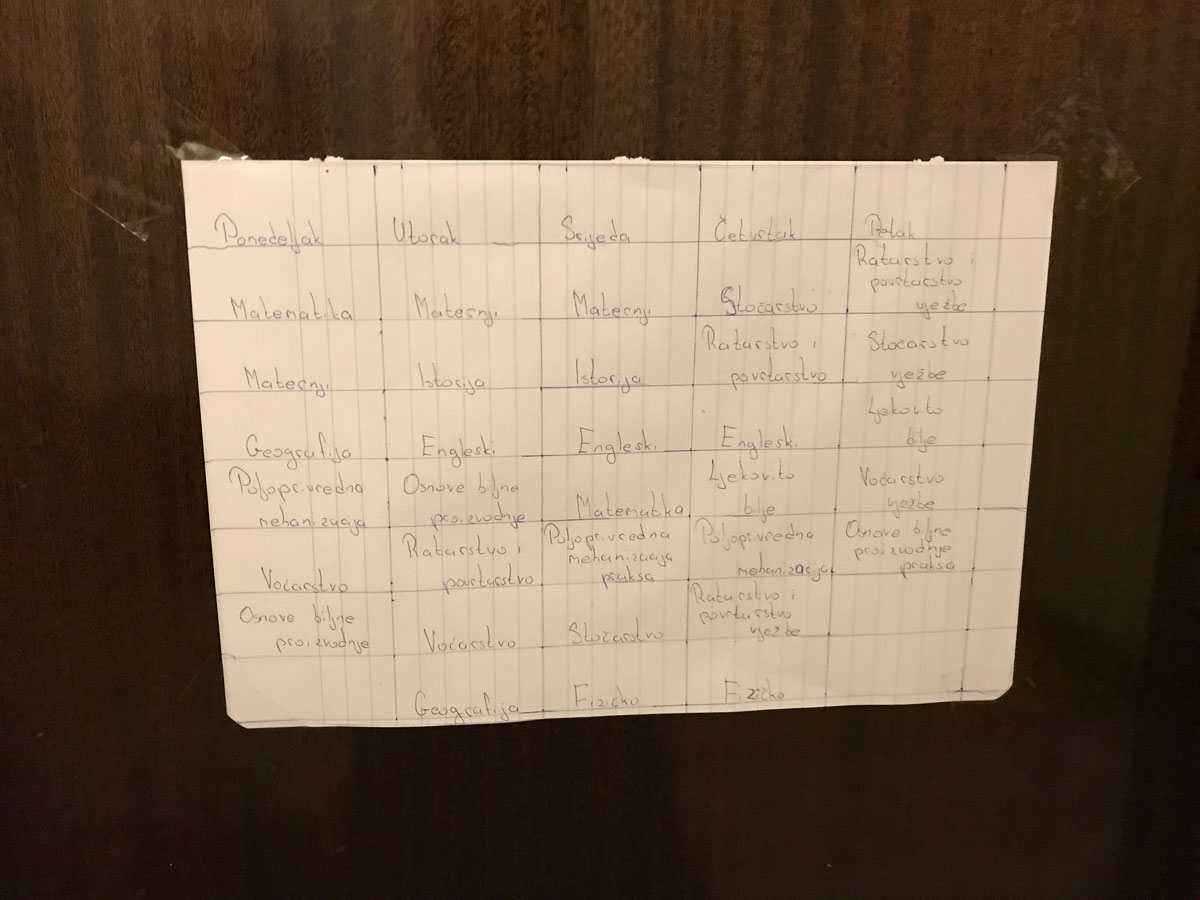 Ponedeljak Utorak Srijeda Četvrtak Petak
Ratarstvo i
povrtarstvo
Matematika Maternji Maternji Stočarstvo vježbe
Ratarstvo i Stočarstvo
Maternji Istorija Istorija povrtarstvo vježbe
Ljekovito
Geografija Engleski Engleski Engleski bilje
Poljoprivredna Osnove biljne Ljekovito Voćarstvo
mehanizacija proizvodnje Matematika bilje vježbe
Ratarstvo i Poljoprivredna Poljoprivredna Osnove biljne
mehanizacija proizvodnje
Voćarstvo povrtarstvo praksa mehanizacija praksa
Osnove biljne Ratarstvo i
povrtarstvo
proizvodnje Voćarstvo Stočarstvo vježbe
Geografija Fizičko Fizičko